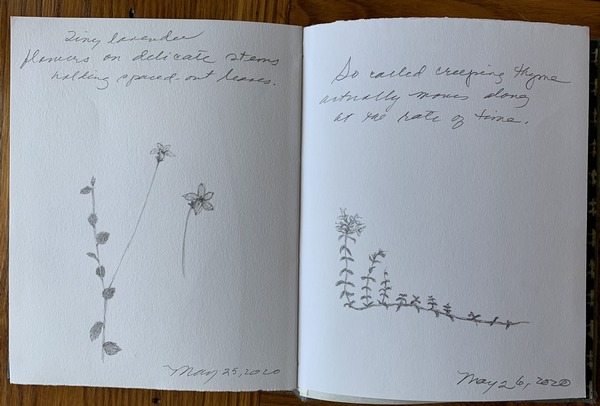 Tiny lavender
flowers on delicate stems
holding spaced-out leaves.
May 25, 2020
So called creeping thyme
actually moves along
at the rate of time.
May 26, 2020